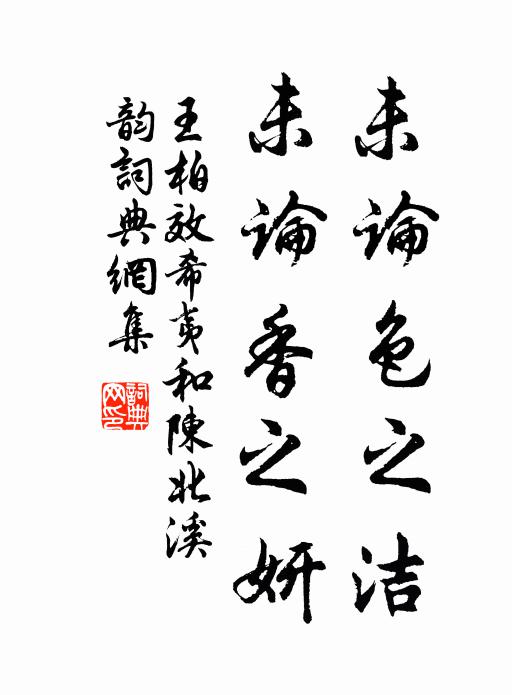 未論色之洁
未論香之妍
王柏效希夷和陳北溪
韵詞典網集
詞典
网印